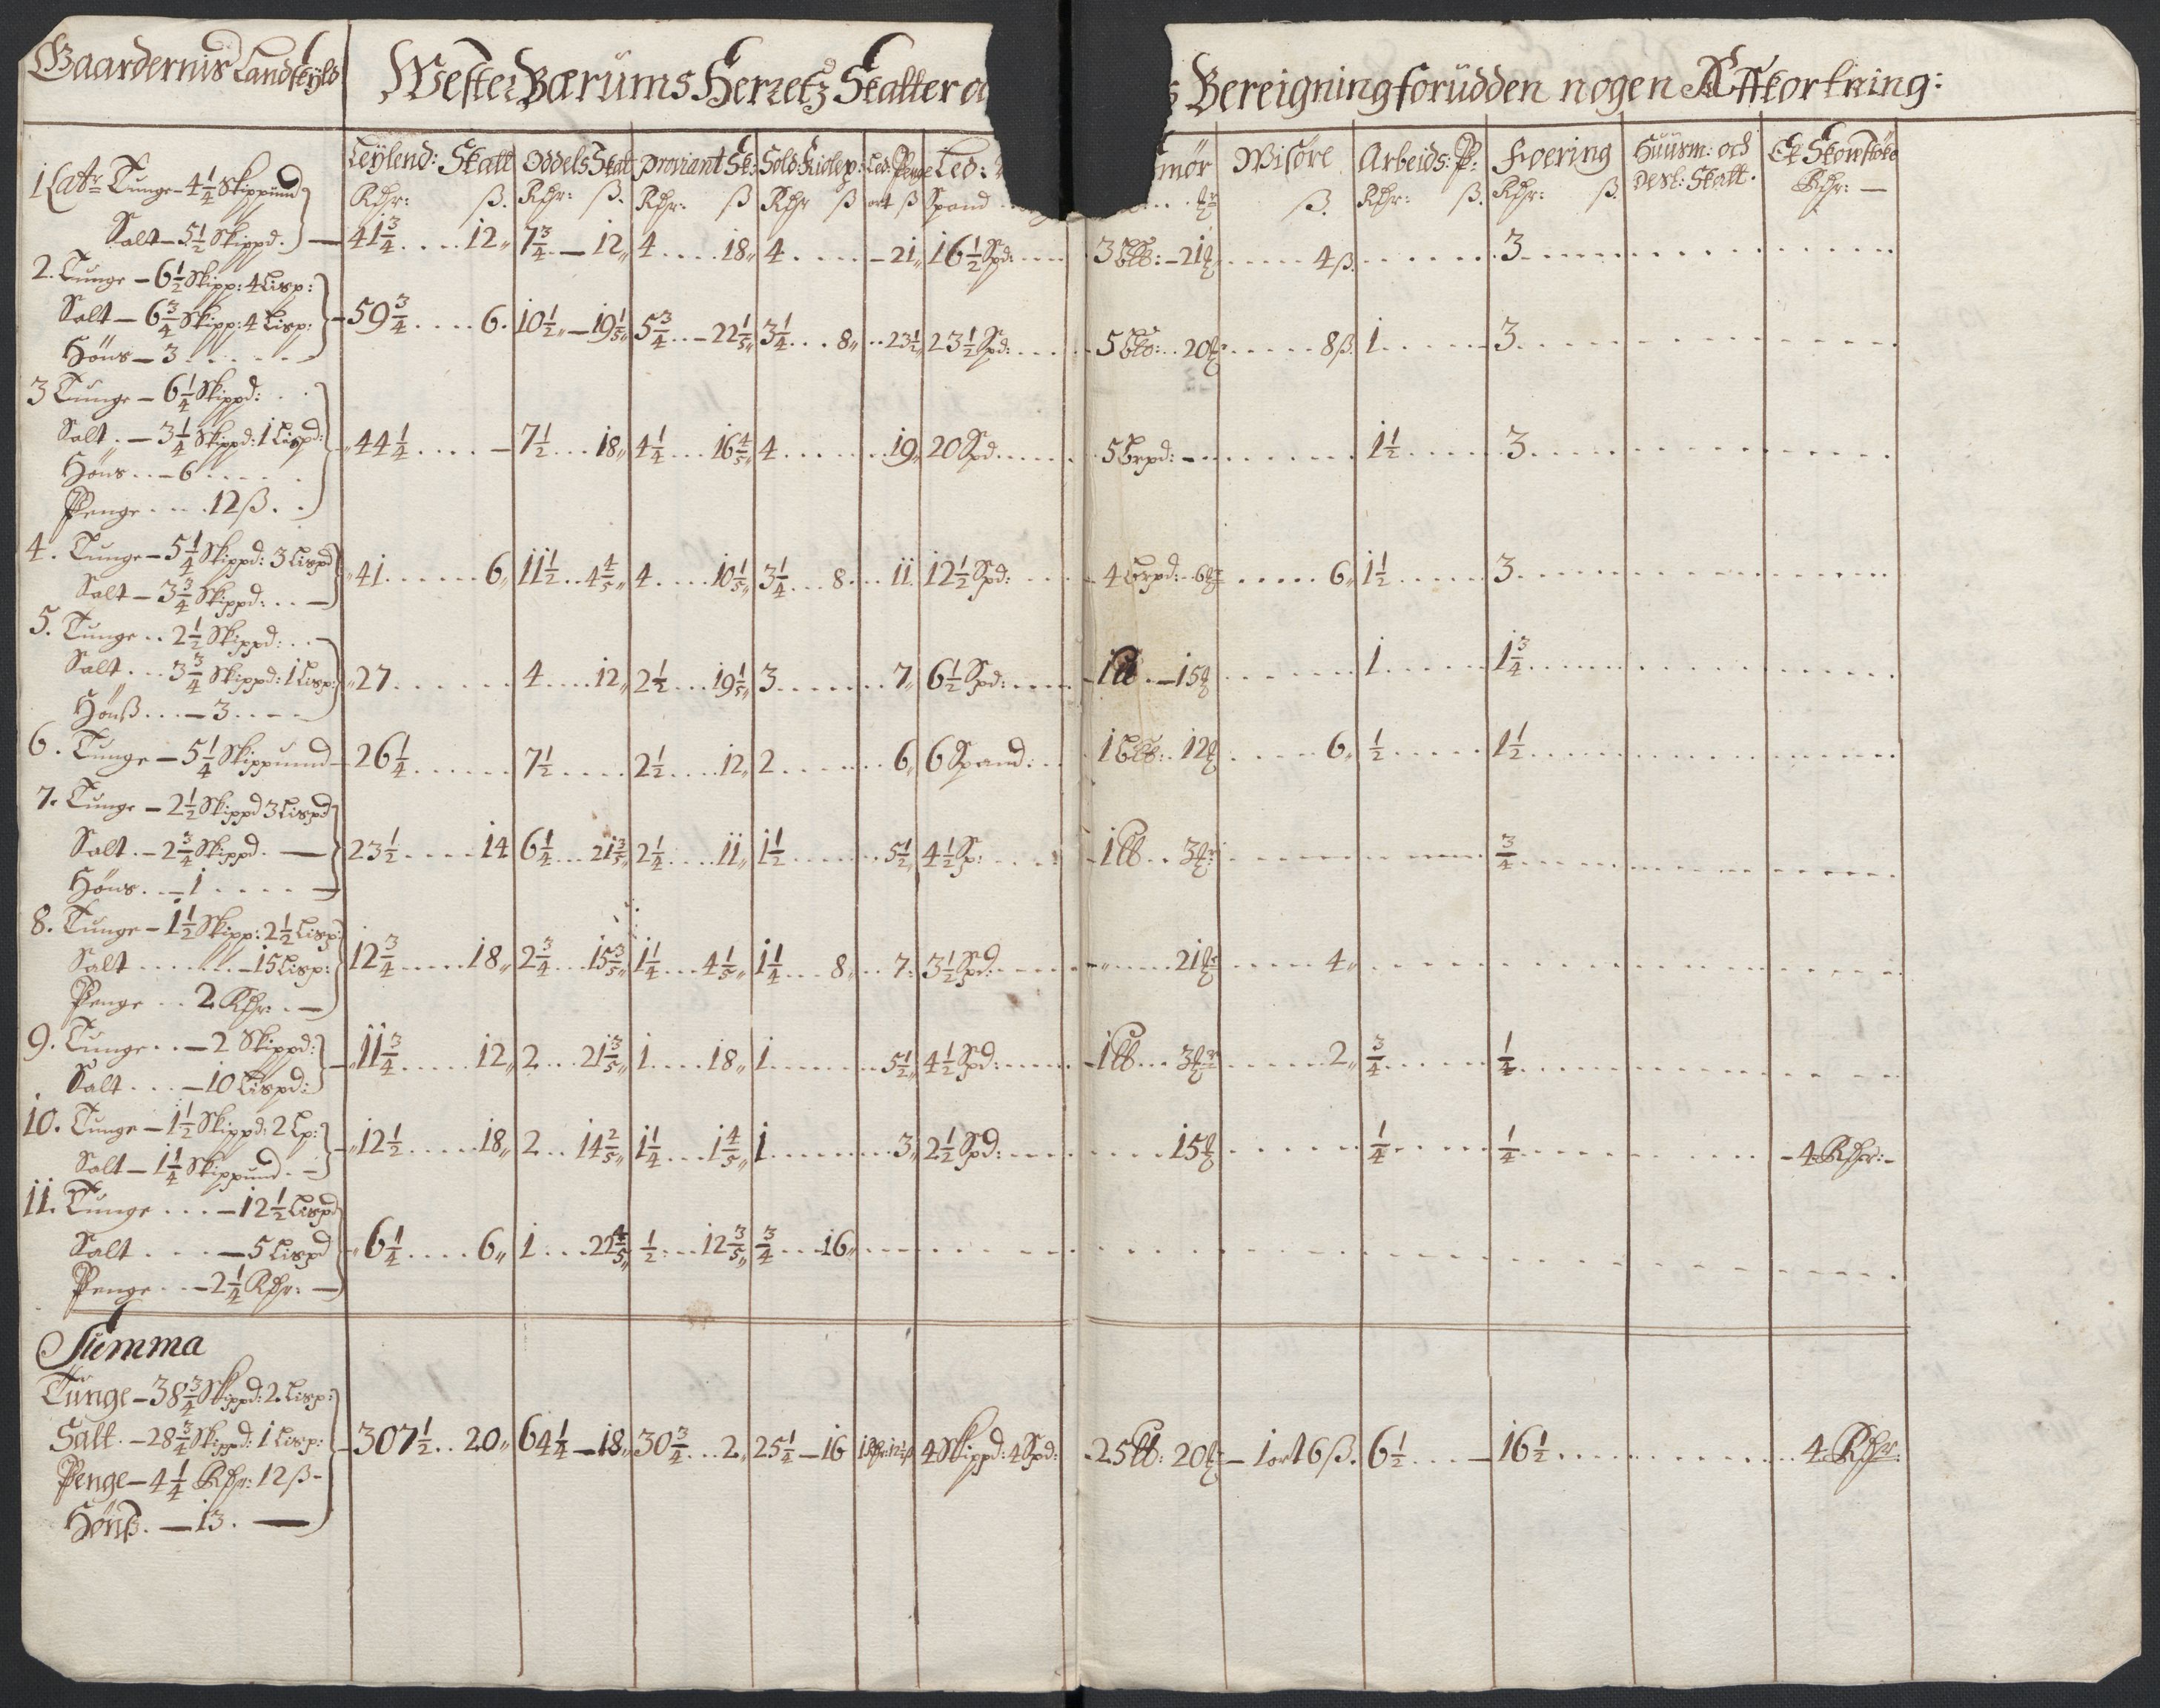 Gaardernis Landskyld
Wester Bærums Herretz Skatter o
Bereigning forüdden nogen Affkortning:
Leÿlend: Skatt Oddels Skat Proviant Sk: Sold: Led: Penge Led:
mör Wisöre Arbeids: P: Foering Huusm: och Ek Skowstöke
Deſl: Skatt.
Rdr: ß. Rdr: ß. Rdr: ß Rdr ß ort ß Spand
ß. Rdr: ß. Rdr: ß. Rdr: —
1 Tunge – 4 1/4 Skippund
Salt – 5 1/2 Skippd. — 41 3/4 .... 12 „ 7 3/4 — 12 „ 4 .... 18 „ 4 .... – 21 „ 16 1/2 Spd: 3 – 21 4 ß. 3
2. Tunge – 6 1/2 Skipp: 4 Lisp:
Salt – 6 3/4 Skipp: 4 Lisp: – 59 3/4 .... 6. 10 1/2 „ – 19 1/5 „ 5 3/4 .. – 22 1/5 „ 3 1/4 ... 8 „ .. 23 1/2 „ 23 1/2 Spd: 5 20 8 ß. 1 3
Höns – 3
3 Tunge – 6 1/4 Skippd:
Salt . – 3 1/4 Skippd: 1 Lispd: „ 44 1/4 .... – 7 1/2 ... 18 „ 4 1/4 ... 16 4/5 „ 4 ....... 19 „ 20 Spd. 5 – 1 1/2 3
Höns .. – 6
Penge .... 12 ß.
4. Tunge – 5 1/4 Skippd: 3 Lispd
Salt – 3 3/4 Skippd: .. — „ 41 ...... 6 „ 11 1/2 .. 4 4/5 „ 4 .... 10 1/5 „ 3 1/4 ... 8 ... 11. 12 1/2 Spd: 4 6 6 „ 1 1/2 3
5. Tunge .. 2 1/2 Skippd: .. –
Salt ... 3 3/4 Skippd: 1 Lisp: „ 27 4 .... 12 „ 2 1/2 ... 19 1/5 „ 3 ....... 7 „ 6 1/2 Spd: 1 – 15 1 1 3/4
Hönß ... – 3
6. Tunge – 5 1/4 Skippund – 26 1/4 7 1/2 2 1/2 .... 12 „ 2 ...... 6 „ 6 Spand: 1 12 6 „ 1/2 1 1/2
7. Tunge – 2 1/2 Skippd 3 Lispd
Salt . – 2 3/4 Skippd. — 23 1/2 .... 14 6 1/4 ... 21 3/5 „ 2 1/4 .... 11 „ 1 1/2 ..... 5 1/2 „ 4 1/2 Sp: 1 3 3/4
Höns . – 1
8. Tunge – 1 1/2 Skipp: 2 1/2 Lisp:
Salt ....... – 15 Lisp: 12 3/4 ..... 18 „ 2 3/4 ... 15 3/5 „ 1 1/4 ... 4 1/5 „ 1 1/4 ... 8 „ .. 7. 3 1/2 Spd: „ 21 4 „
Penge .. 2 Rdr: . —
9. Tunge .. – 2 Skippd:
Salt ... – 10 Lispd: – „ 11 3/4 ..... 12 „ 2 ... 21 3/5 „ 1 .... 18 „ 1 ....... 5 1/2 „ 4 1/2 Spd: 1 3 2 „ 3/4 1/4
10. Tunge – 1 1/2 Skippd: 2 Lp:
Salt – 1 1/4 Skippund . – – „ 12 1/2 ..... 18 „ 2 .. 14 2/5 „ 1 1/4 ... 1 4/5 „ 1 ......... 3 „ 2 1/2 Spd: 15 1/4 1/4 – 4 Rdr: –
11. Tunge ... – 12 1/2 Lispd
Salt .... – 5 Lispd – „ 6 1/4 .... 6 „ 1 ... 22 4/5 „ 1/2 : .. 12 3/5 „ 3/4 ... 16 „
Penge .. – 2 1/4 Rdr: —
Summa
Tunge – 38 3/4 Skippd: 2. Lisp:
Salt . – 28 3/4 Skippd: 1 Lisp: – 307 1/2 .. 20 „ 64 1/4 – 18 „ 30 3/4 ... 2 „ 25 1/4 – 16 4 Skippd: 4 Spd: 25 20 – 1 ort 6 ß. 6 1/2 ... – 16 1/2 4 Rdr:
Penge – 4 1/4 Rdr: 12 ß –
Hönß. — 13. —